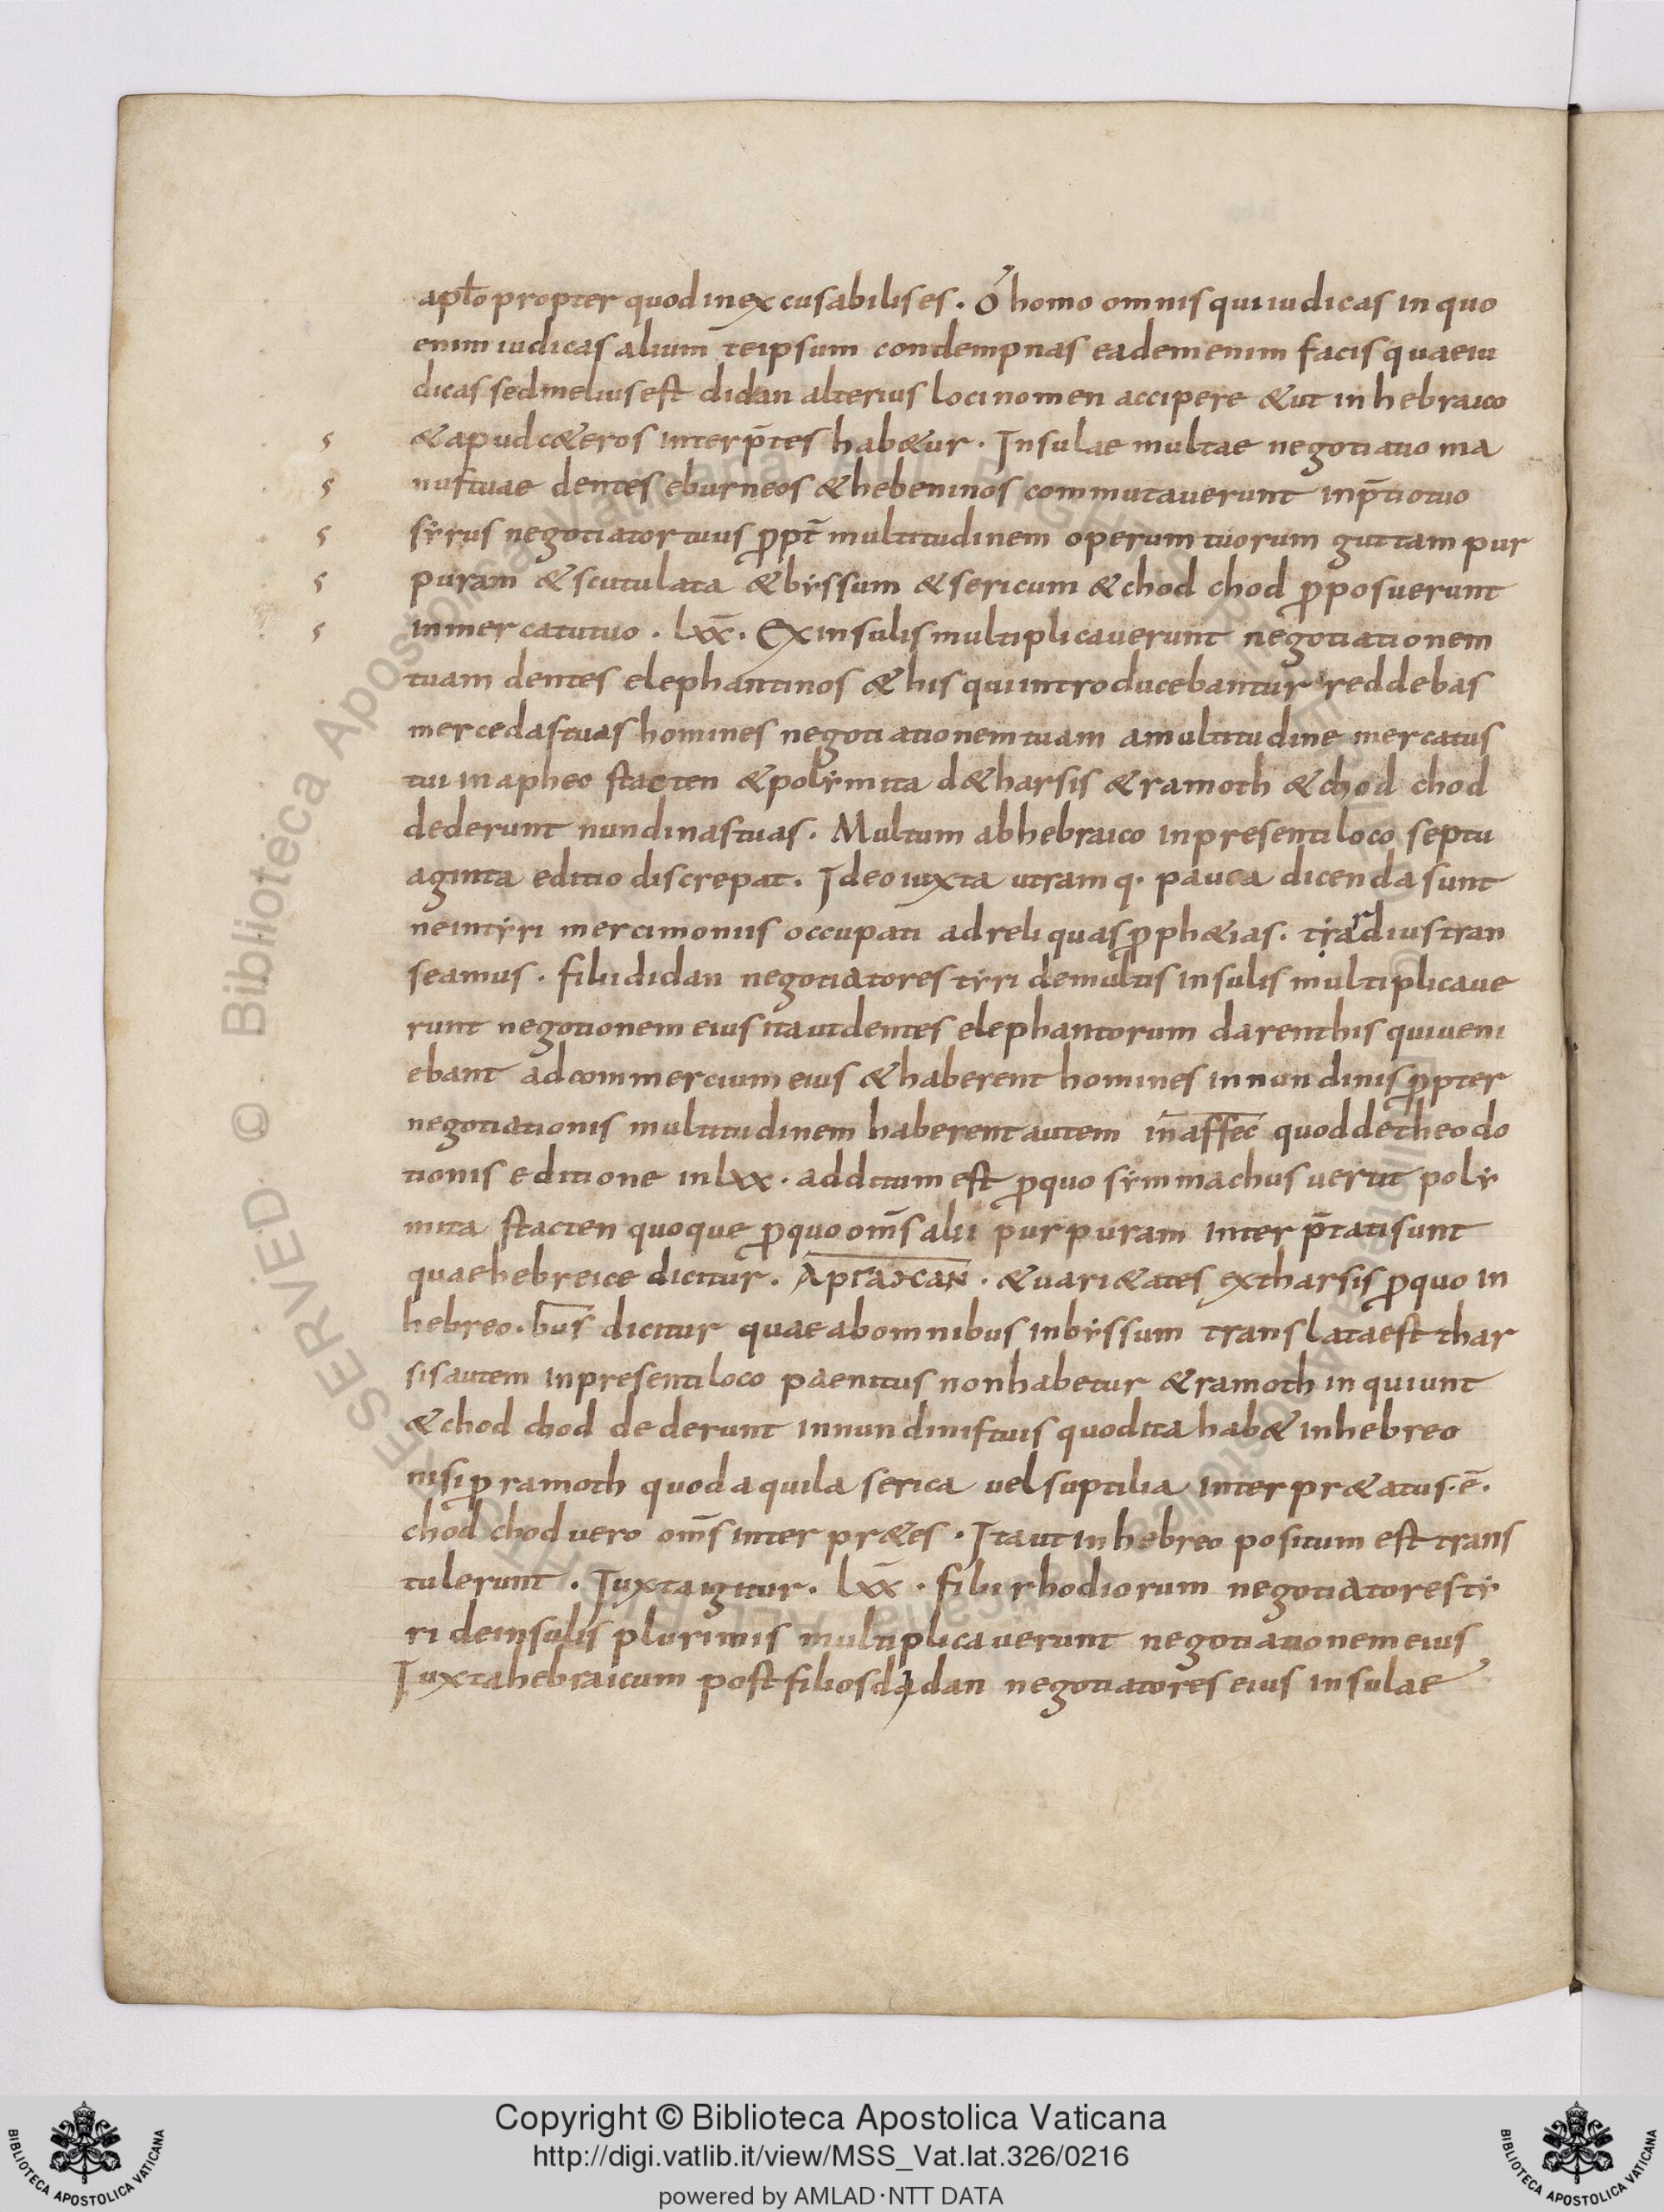 aptło propter quod inexcusabilis es. Ó homo omnis qui iudicas in quo
enim iudicas alium teipsum condempnas eadem enim facis quae iu
dicas sed melius est didan alterius loci nomen accipere & ut in hebraico
& apud c&eros interp̄tes hab&ur. Insulae multae negotiatio ma
nus tuae dentes eburneos & hebeninos commutauerunt in p̄tio tuo
syrus negotiator tuus ꝓpt̄ multitudinem operum tuorum guttam pur
puram & scutulata & byssum & sericum & chod chod ꝓposuerunt
in mercatu tuo. lxx̄. Ex insulis multiplicauerunt negotiationem
tuam dentes elephantinos & his qui introducebantur reddebas
mercedas tuas homines negotiationem tuam a multitudine mercatus
tui in aphec stacten & polymita d& harsis & ramoth & chod chod
dederunt nundinas tuas. Multum ab hebraico in presenti loco septu
aginta editio discrepat. Ideo iuxta utramq. pauca dicenda sunt
ne in tyri mercimoniis occupati ad reliquas ꝓph&ias. tyardius tran
seamus. filii didan negotiatores tyri de multis insulis multiplicaue
runt negotionem eius ita ut dentes elephantorum darent his qui ueni
ebant ad commercium eius & haberent homines in nundinis ꝓpter
negotiationis multitudinem haberent autem in affec quod de theodo
tionis editione in lxx. additum est ꝓ quo symmachus uertit poly
mita stacten quoque ꝓ quo om̄s alii purpuram interp̄tati sunt
quae hebreice dicitur. & uari&ates ex tharsis ꝓ quo in
hebreo. bus dicitur quae ab omnibus in byssum translata est thar
sis autem in presenti loco paenitus non habetur & ramoth inquiunt
& chod chod dederunt in nundinis tuis quod ita hab& in hebreo
nisi ꝓ ramoth quod aquila serica uel suptilia interpr&atus. ē.
chod chod uero om̄s interpr&es. Ita ut in hebreo positum est trans
tulerunt. Iuxta igitur. lxx̄. filii rhodiorum negotiatores ty
ri de insulis plurimis multiplicauerunt negotiationem eius
Iuxta hebraicum post filios dadan negotiatores eius insulae
s
s
s
s
s
© Biblioteca Apostolica Vaticana ALL RIGHTS RESERVED
BIBLIOTECA APOSTOLICA VATICANA
Copyright © Biblioteca Apostolica Vaticana
http://digi.vatlib.it/view/MSS_Vat.lat.326/0216
powered by AMLAD·NTT DATA
BIBLIOTECA APOSTOLICA VATICANA